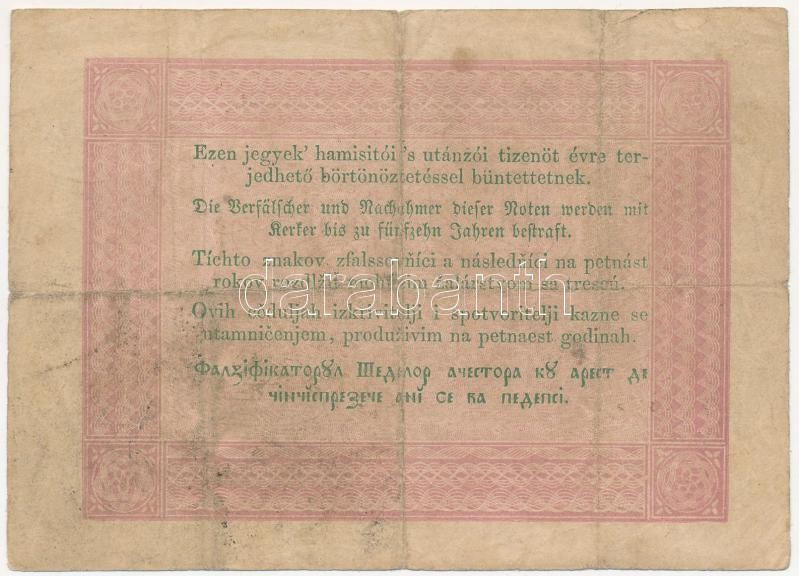 Ezen jegyek' hamisitói 's utánzói tizenöt évre ter-
jedhető börtönöztetéssel büntettetnek.
Die Verfälscher und Nachahmer dieser Noten werden mit
Kerker bis zu fünfzehn Jahren bestraft.
Tíchto znakov zfalssovňíci a následňíci na petnást
rokov sa trescú.
darabanth
Ovih ceduljah i spotvoritelji kazne se
utamničenjem, produživim na petnaest godinah.
Фалꙟіфікаторꙋл Шеделор ачестора кꙋ арест де
чінчіспрезече ані се ва педепсі.